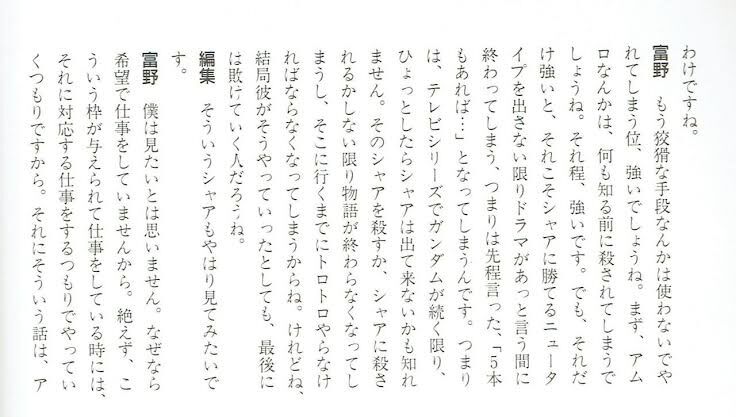 わけですね。
富野　もう狡猾な手段なんかは使わないでや
れてしまう位、強いでしょうね。まず、アム
ロなんかは、何も知る前に殺されてしまうで
しょうね。それ程、強いです。でも、それだ
け強いと、それこそシャアに勝てるニュータ
イプを出さない限りドラマがあっと言う間に
終わってしまう、つまりは先程言った、「5本
もあれば…」となってしまうんです。つまり
は、テレビシリーズでガンダムが続く限り、
ひょっとしたらシャアは出て来ないかも知れ
ません。そのシャアを殺すか、シャアに殺さ
れるかしない限り物語が終わらなくなってし
まうし、そこに行くまでにトロトロやらなけ
ればならなくなってしまうからね。けれどね、
結局彼がそうやっていったとしても、最後に
は敗けていく人だろうね。
編集　そういうシャアもやはり見てみたいで
す。
富野　僕は見たいとは思いません。なぜなら
希望で仕事をしていませんから。絶えず、こ
ういう枠が与えられて仕事をしている時には、
それに対応する仕事をするつもりでやってい
くつもりですから。それにそういう話は、ア